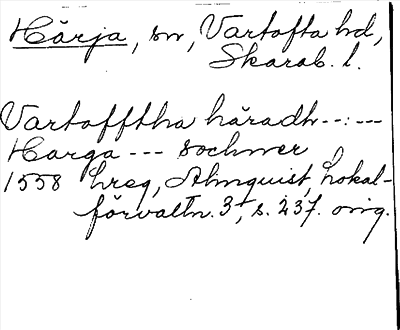 Härja, sn, Vartofta hd,
Skarab. l.
Vartofftha häradh --:---
Harga --- sochner
1558 hreg, Almquist, Lokal-
förvaltn. 3, s. 237. orig.